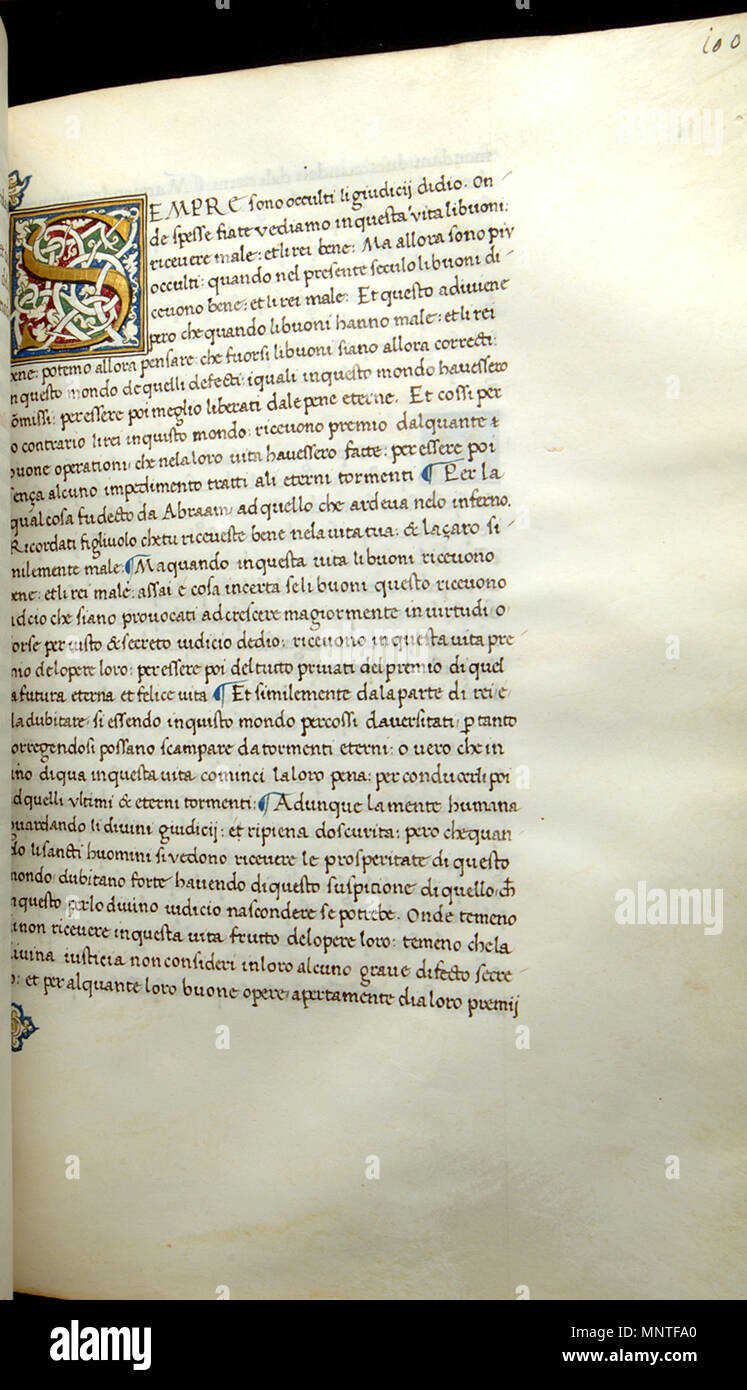 100
SEMPRE sono occulti li giudicij didio. On
de spesse fiate vediamo in questa vita li buoni:
ricevere male: et li rei bene: Ma allora sono piu
occulti: quando nel presente seculo li buoni di
cevono bene: et li rei male: Et questo adiviene
pero che quando li buoni hanno male: et li rei
ene: potemo allora pensare: che fuorsi li buoni siano allora correcti:
nquesto mondo de quelli defecti: iquali in questo mondo havessero
omissi: per essere poi meglio liberati dale pene eterne. Et cossi per
o contrario li rei in quisto mondo: ricevono premio dalquante &
buone operationi che nela loro vita havessero facte: per essere poi
sença alcuno impedimento tratti ali eterni tormenti ¶ Per la
qual cosa fu decto da Abraam ad quello che ardeva nelo inferno.
Ricordati figliuolo che tu riceveste bene nela vita tua: & laçaro si
milemente male: ¶ Ma quando in questa vita li buoni ricevono
ene: et li rei male: assai e cosa incerta se li buoni questo ricevono
idcio che siano provocati ad crescere magiormente in virtudi o
orse per iusto & secreto iudicio dedio: ricevono in questa vita pre
mio delopere loro: per essere poi del tutto privati del premio di quel
a futura eterna et felice vita ¶ Et similemente dala parte di rei e
la dubitare: si essendo in quisto mondo percossi daversitati: p tanto
orregendosi possano scampare da tormenti eterni: o vero che in
ino di qua in questa vita cominci la loro pena: per conducerli poi
dquelli ultimi & eterni tormenti: ¶ Adunque la mente humana
uardando li divini giudicij: et ripiena doscurita: pero che quan
do li sancti huomini si vedono ricevere le prosperitate di questo
mondo: dubitano forte havendo di questo suspitione di quello: ch
nquesto per lo divino iudicio nascondere se potrebe. Onde temeno
non ricevere in questa vita frutto delopere loro: temeno che la
ivina iusticia non consideri in loro alcuno grave difecto secre
o: et per alquante loro buone opere: apertamente dia loro premij
alamy
Image ID: MNTFA0
www.alamy.com